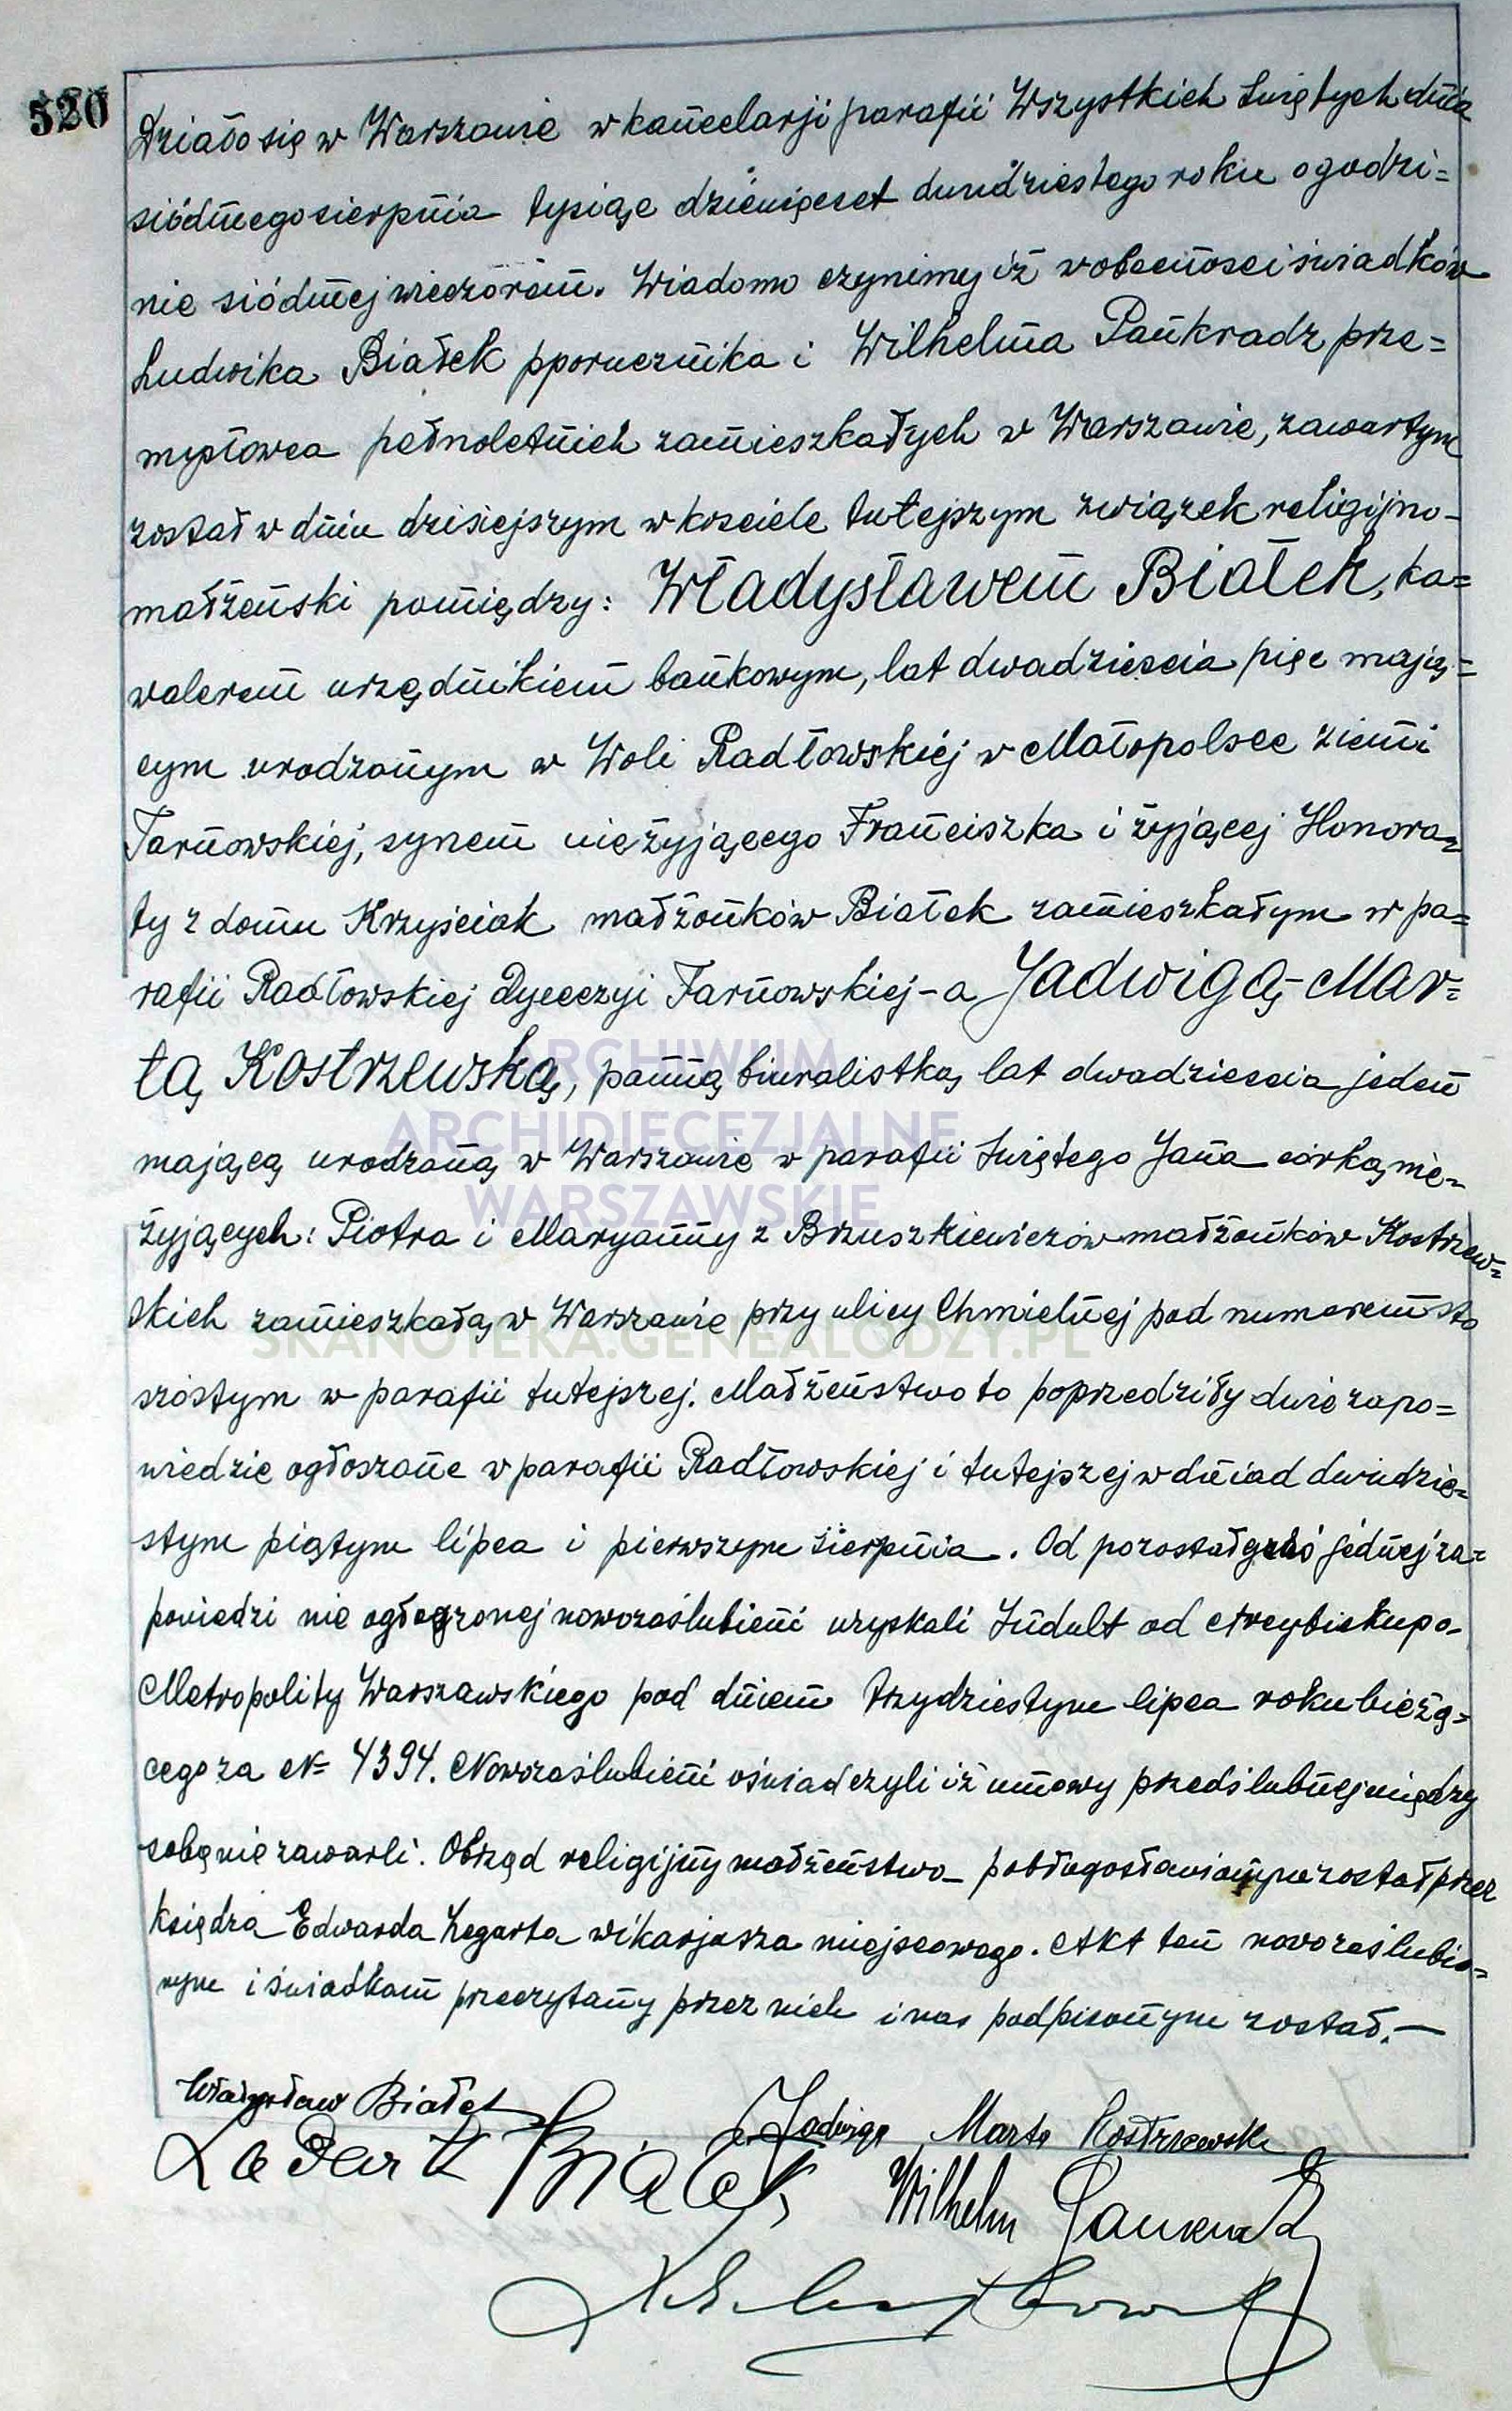 520
Działo się w Warszawie w kancelarji parafii Wszystkich Świętych dnia
siódmego sierpnia tysiąc dziewięcset dwudziestego roku o godzi=
nie siódmej wieczorem. Wiadomo czynimy iż w obecności świadków
Ludwika Białek pporucznika i Wilhelma Pankradz prze=
mysłowca pełnoletnich zamieszkałych w Warszawie, zawartym
został w dniu dzisiejszym w kosciele tutejszym związek religijno-
małżeński pomiędzy: Władysławem Białek, ka=
walerem urzędnikiem bankowym, lat dwadzieścia pięc mają=
cym urodzonym w Woli Radłowskiej w Małopolsce ziemi
Tarnowskiej, synem nieżyjącego Franciszka i żyjącej Honora=
ty z domu Krzyściak małżonków Białek zamieszkałym w pa=
rafii Radłowskiej Dyecezyi Tarnowskiej - a Jadwigą-Mar=
tą Kostrzewską, panną biuralistką, lat dwadzieścia jeden
mającą urodzoną w Warszawie w parafii Świętego Jana córką nie=
żyjących: Piotra i Maryanny z Bruszkiewiczów małżonków Kostrzew=
skich zamieszkałą w Warszawie przy ulicy Chmielnej pod numerem sto
szóstym w parafii tutejszej. Małżeństwo to poprzedziły dwie zapo=
wiedzie ogłoszone w parafii Radłowskiej i tutejszej w dniad dwudzie=
stym piątym lipca i pierwszym sierpnia. Od pozostałej jednej za=
powiedzi nie ogłoszonej nowozaślubieni uzyskali Indult od Arcybiskupa
Metropolity Warszawskiego pod dniem trzydziestym lipca roku bieżą=
cego za N= 4394. Nowozaślubieni oświadczyli iż umowy przedślubnej między
sobą nie zawarli. Obrzęd religijny małżeństwa pobłogosławionym został przez
księdza Edwarda Żegarta wikarjusza miejscowego. Akt ten nowozaślubio=
nym i świadkom przeczytany przez nich i nas podpisanym został. —
Władysław Białek
Jadwiga Marta Kostrzewska
Białek Wilhelm Pankradz
ARCHIWUM
ARCHIDIECEZJALNE
WARSZAWSKIE
SKANOTEKA.GENEALODZY.PL